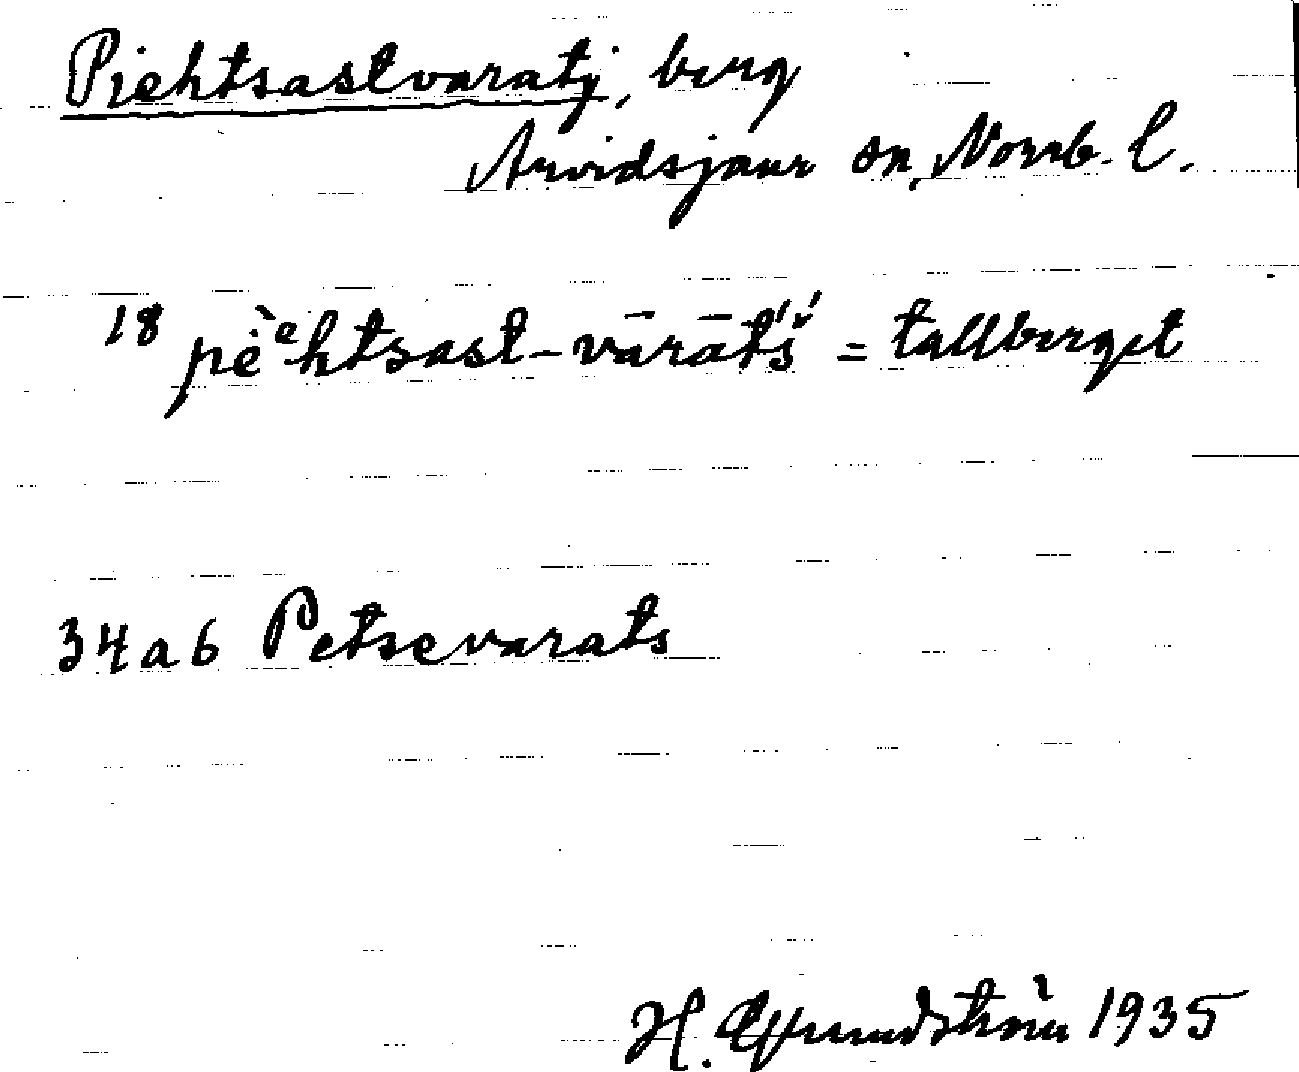 Piehtsastvaratj, berg
Arvidsjaur sn, Norrb. l.
18 pèᵉhtsast-vārāt́š́ = tallberget
34 a 6 Petsevarats
H. Grundström 1935